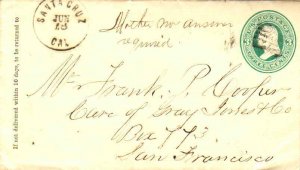 If not delivered within 10 days, to be returned to
SANTA CRUZ
JUN
13
CAL.
Mother no answer
required
Mr Frank P. Cooper
Care of Gray Jones & Co
Box 773
San Francisco